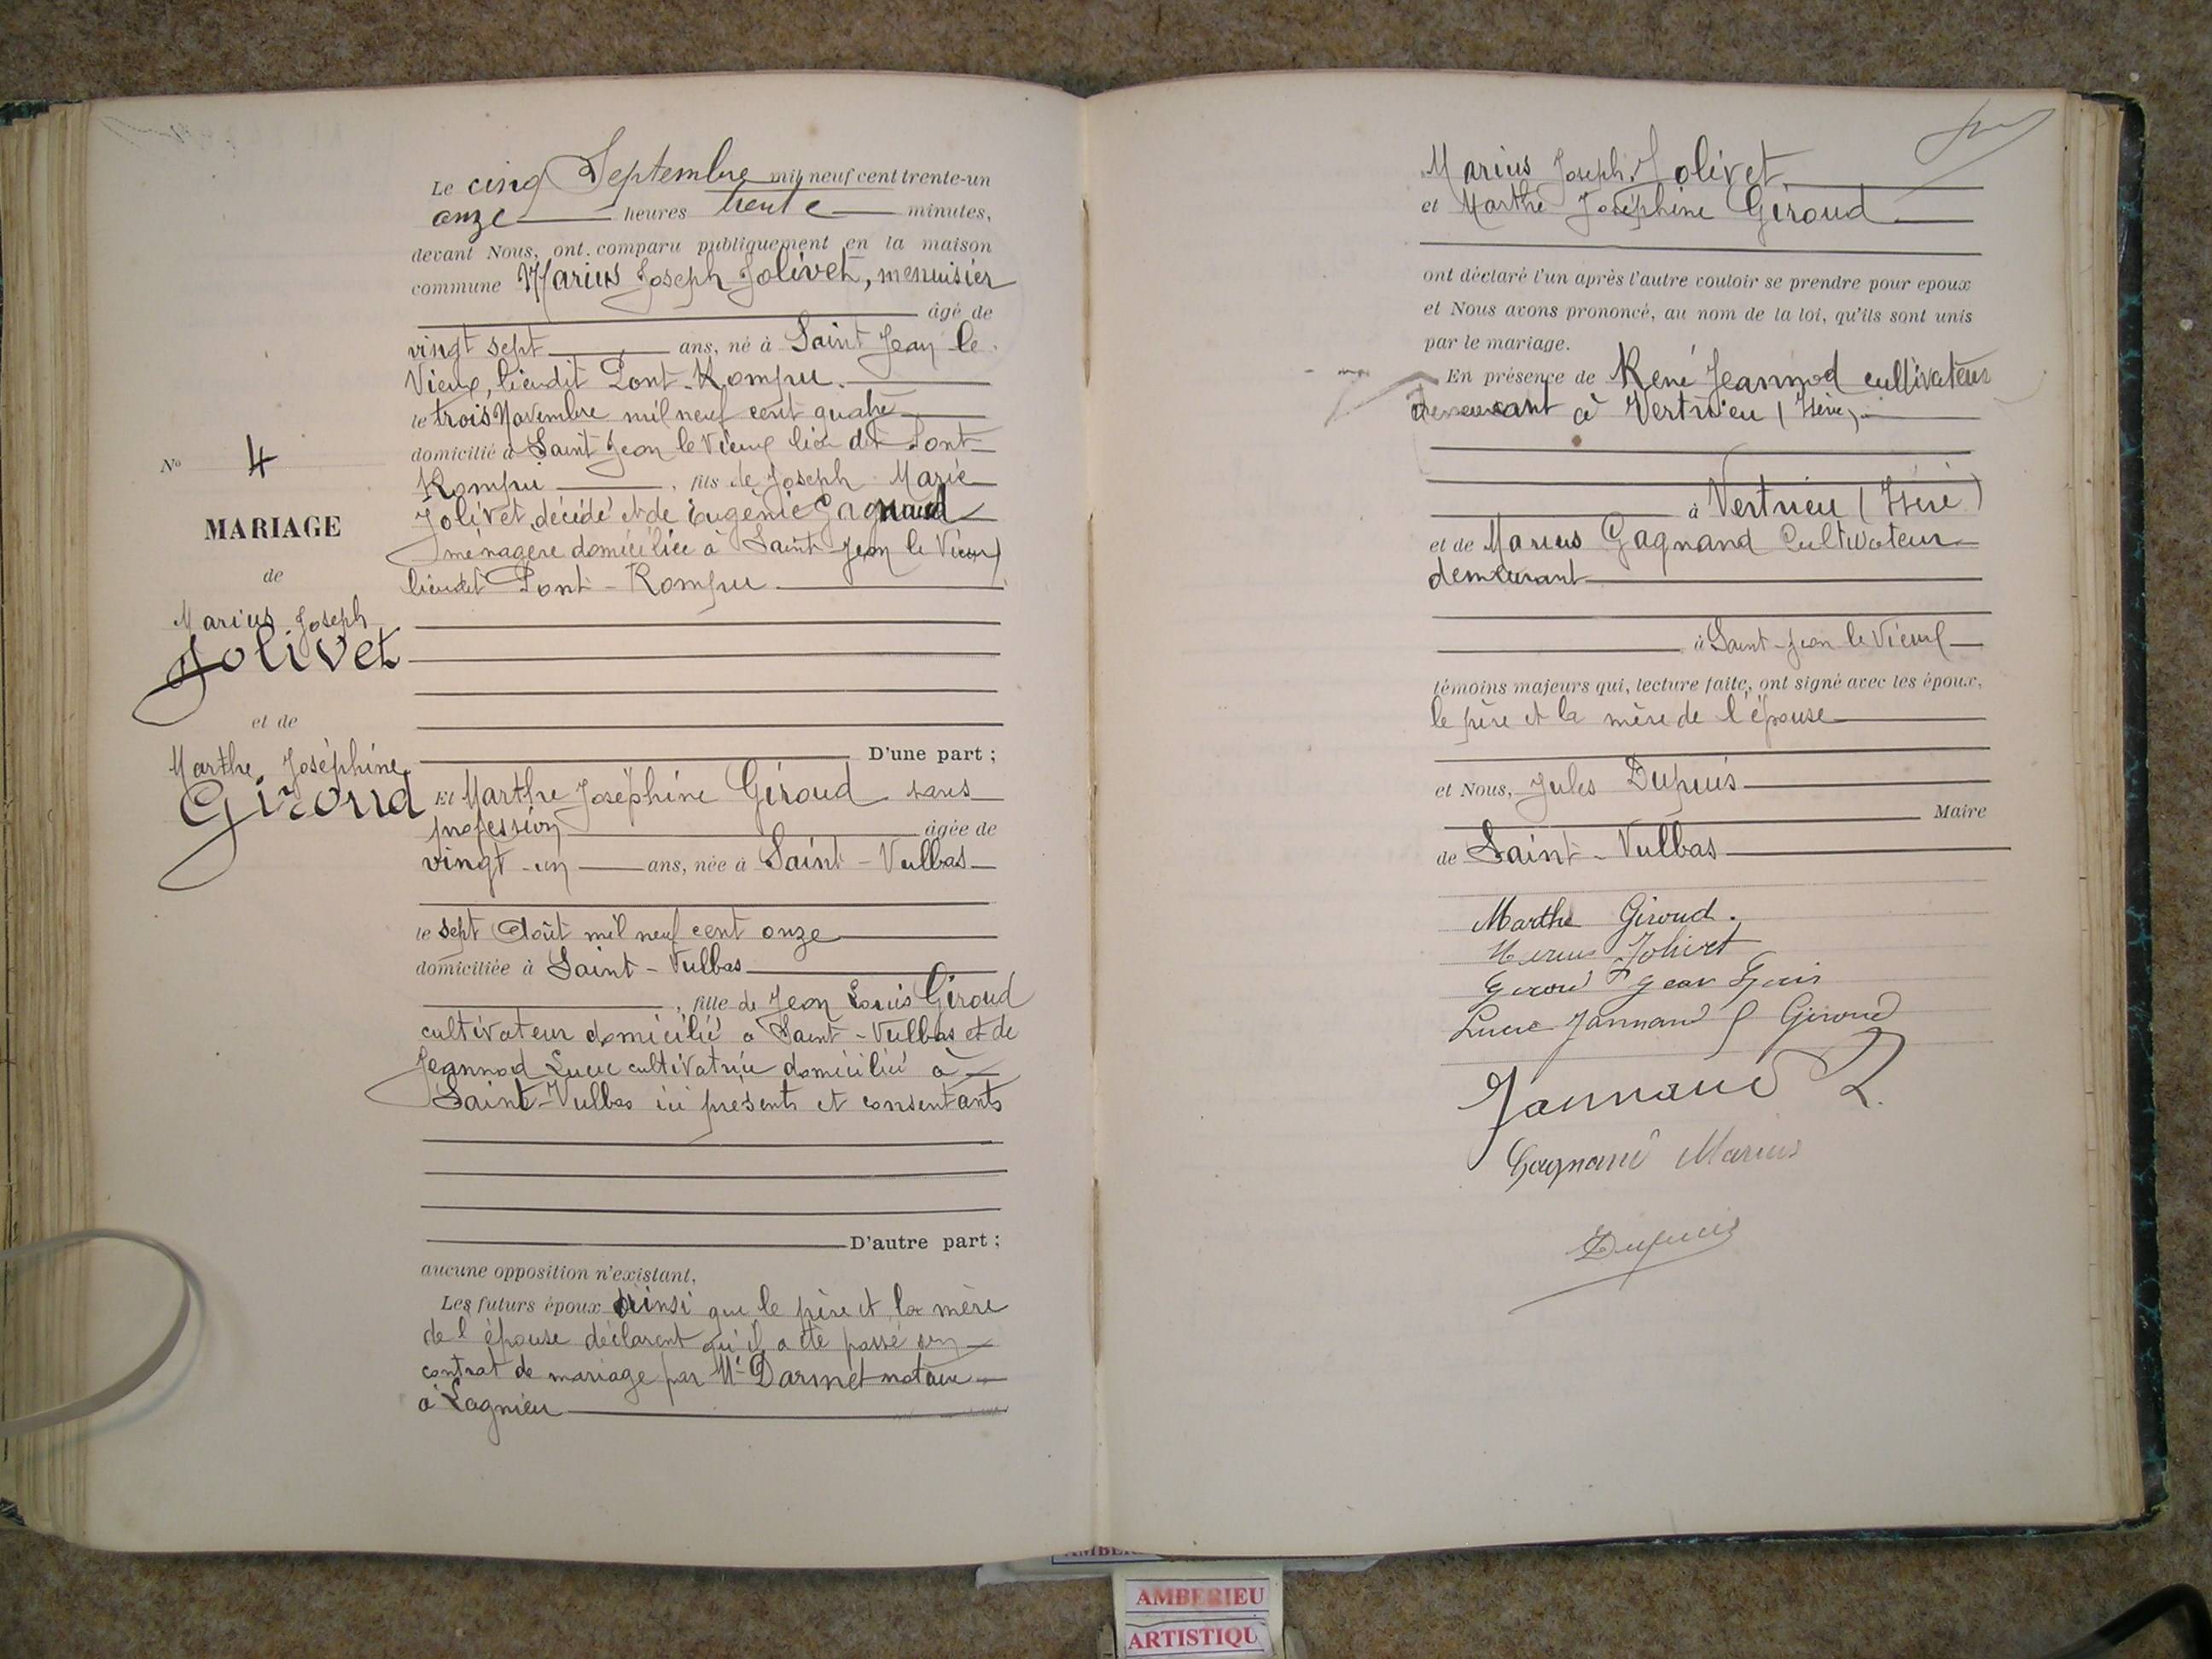 N° 4
MARIAGE
de
Marius Joseph
Jolivet
et de
Marthe Joséphine
Giroud
Le cinq Septembre mil neuf cent trente-un
onze heures trente minutes,
devant Nous, ont comparu publiquement en la maison
commune Marius Joseph Jolivet, menuisier
âgé de
vingt sept ans, né à Saint Jean le
Vieux, lieudit Pont-Rompu.
le trois Novembre mil neuf cent quatre
domicilié à Saint Jean le Vieux lieu dit Pont
Rompu, fils de Joseph Marie
Jolivet, décédé et de Eugénie Gagnand
ménagère domiciliée à Saint-Jean le Vieux
lieudit Pont-Rompu
D'une part ;
Et Marthe Joséphine Giroud sans
profession âgée de
vingt-un ans, née à Saint-Vulbas
le sept Août mil neuf cent onze
domiciliée à Saint-Vulbas
, fille de Jean Louis Giroud
cultivateur domicilié a Saint-Vulbas et de
Jeannod Lucie cultivatrice domicilié à
Saint-Vulbas ici présents et consentants
D'autre part ;
aucune opposition n'existant,
Les futurs époux ainsi que le père et la mère
de l'épouse déclarent qu'il a été passé un
contrat de mariage par Me Darmet notaire
à Lagnieu
Marius Joseph Jolivet
et Marthe Joséphine Giroud
ont déclaré l'un après l'autre vouloir se prendre pour epoux
et Nous avons prononcé, au nom de la loi, qu'ils sont unis
par le mariage.
En présence de René Jeannod cultivateur
demeurant à Vertrieu (Isère)
à Vertrieu (Isère)
et de Marius Gagnand Cultivateur
demeurant
à Saint-Jean le Vieux
témoins majeurs qui, lecture faite, ont signé avec les époux,
le père et la mère de l'épouse
et Nous, Jules Dupuis
Maire
de Saint-Vulbas
Marthe Giroud.
Marius Jolivet
Giroud Jean Louis
Lucie Jannand Giroud
Jannand R.
Gagnand Marius
Dupuis
AMBERIEU
ARTISTIQU